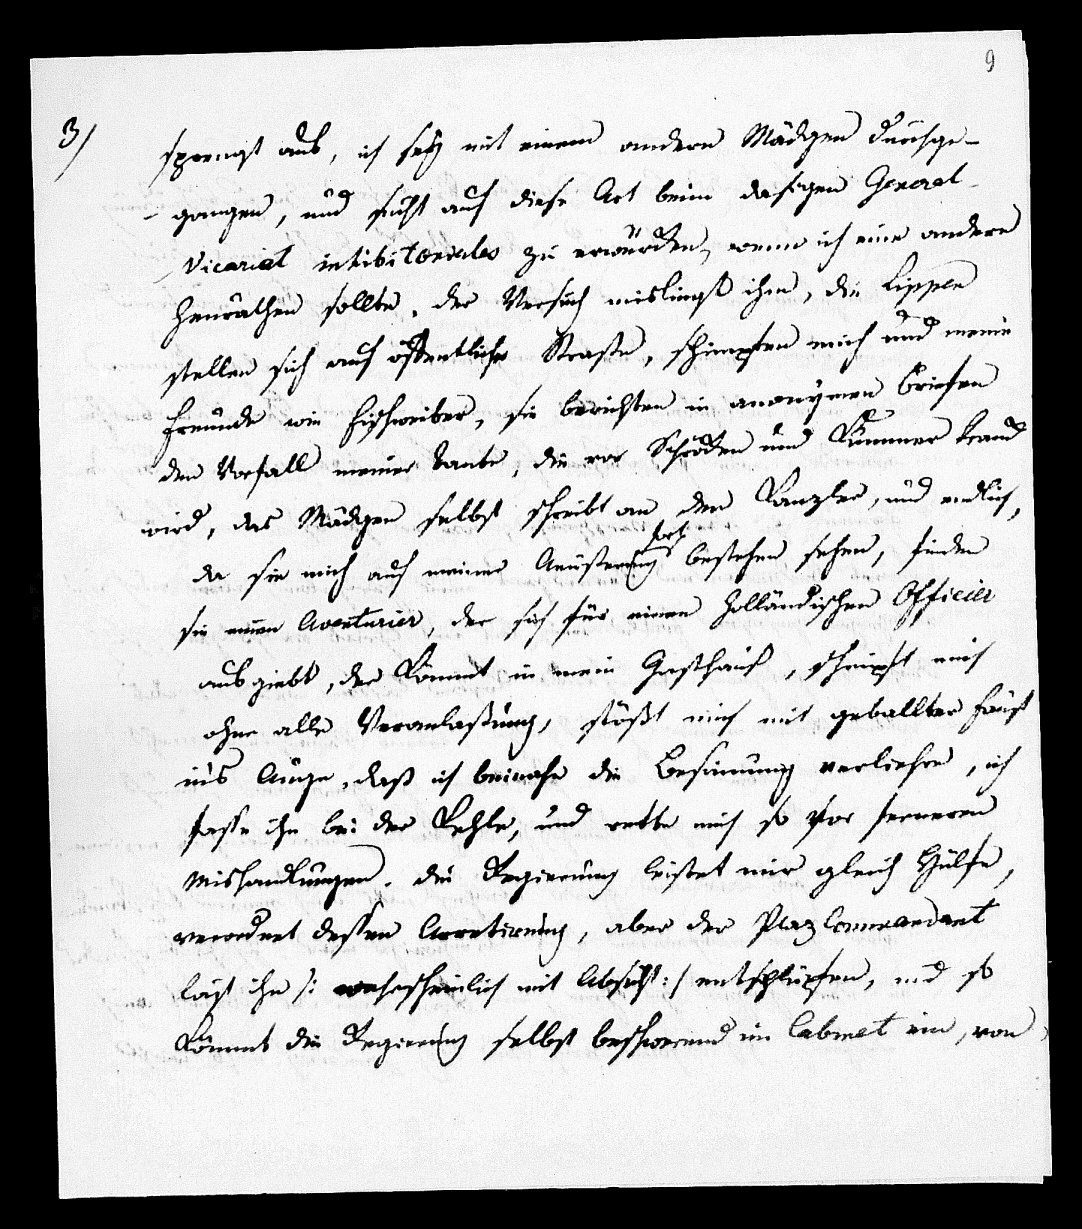 9
3/
sprengt aus, ich seÿ mit einem andern Mädgen durchge-
gangen, und sucht auf diese Art beim dasigen General-
Vicariat inhibitoriales zu erwürken, wenn ich eine andere
heurathen sollte. der Versuch mislingt ihm, die Lippen
stellen sich auf öffentlicher Strasse, schimpfen mich und meine
Freunde wie Fischweiber, sie berichten in anonÿmen Briefen
den Vorfall meiner Tante, die vor Schröken und Kummer krank
wird, das Mädgen selbst schreibt an den Kanzler, und endlich,
da sie mich auf meiner Aeusserung fest bestehen sehen, finden
sie einen Aventurier, der sich für einen holländischen Officier
ausgiebt, der kömmt in mein Gasthaus, schimpft mich
ohne alle Veranlaßung, stößt mich mit geballter Faust
ins Auge, daß ich beinahe die Besinnung verliehre, ich
fasse ihn bei der Kehle, und rette mich so vor ferneren
Mishandlungen. die Regierung leistet mir gleich Hülfe,
verordnet dessen Arretirung, aber der Plazcommandant
läßt ihn /: wahrscheinlich mit Absicht :/ entschlüpfen, und so
kömmt die Regierung selbst beschwerend im Cabinet ein, von